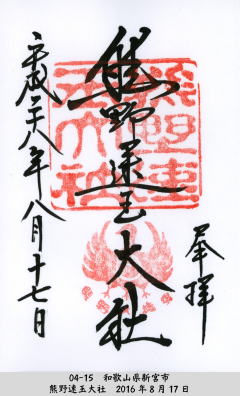 奉拝
熊野速玉大社
平成二十八年八月十七日
04-15 和歌山県新宮市
熊野速玉大社 2016年8月17日